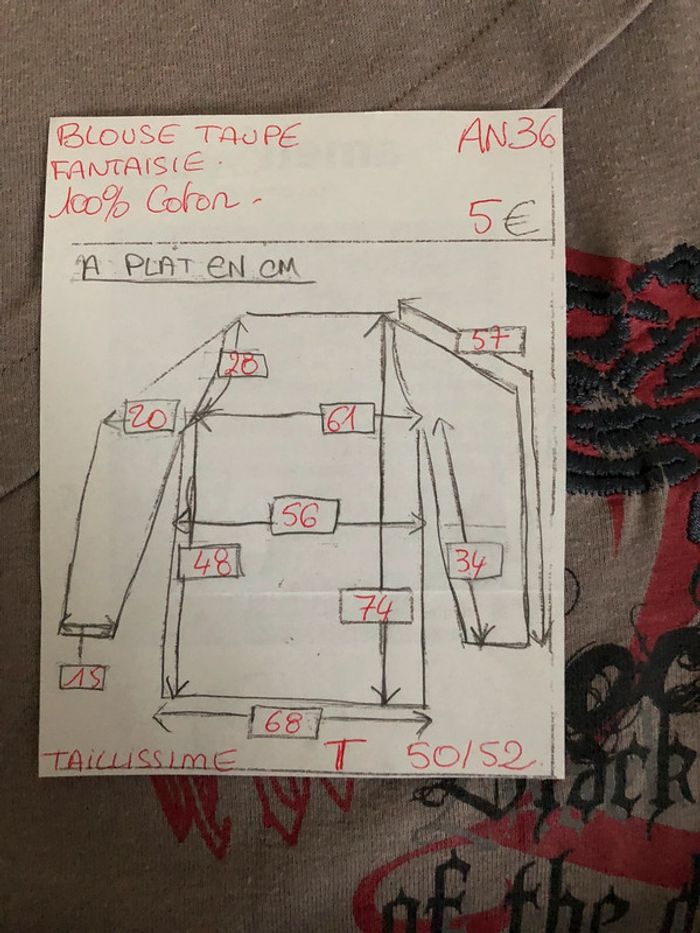 BLOUSE TAUPE
FANTAISIE.
100% Coton.
AN36
5€
A PLAT EN CM
57
28
20
61
56
48
34
74
15
68
TAILLISSIME T 50/52
Black
of the d